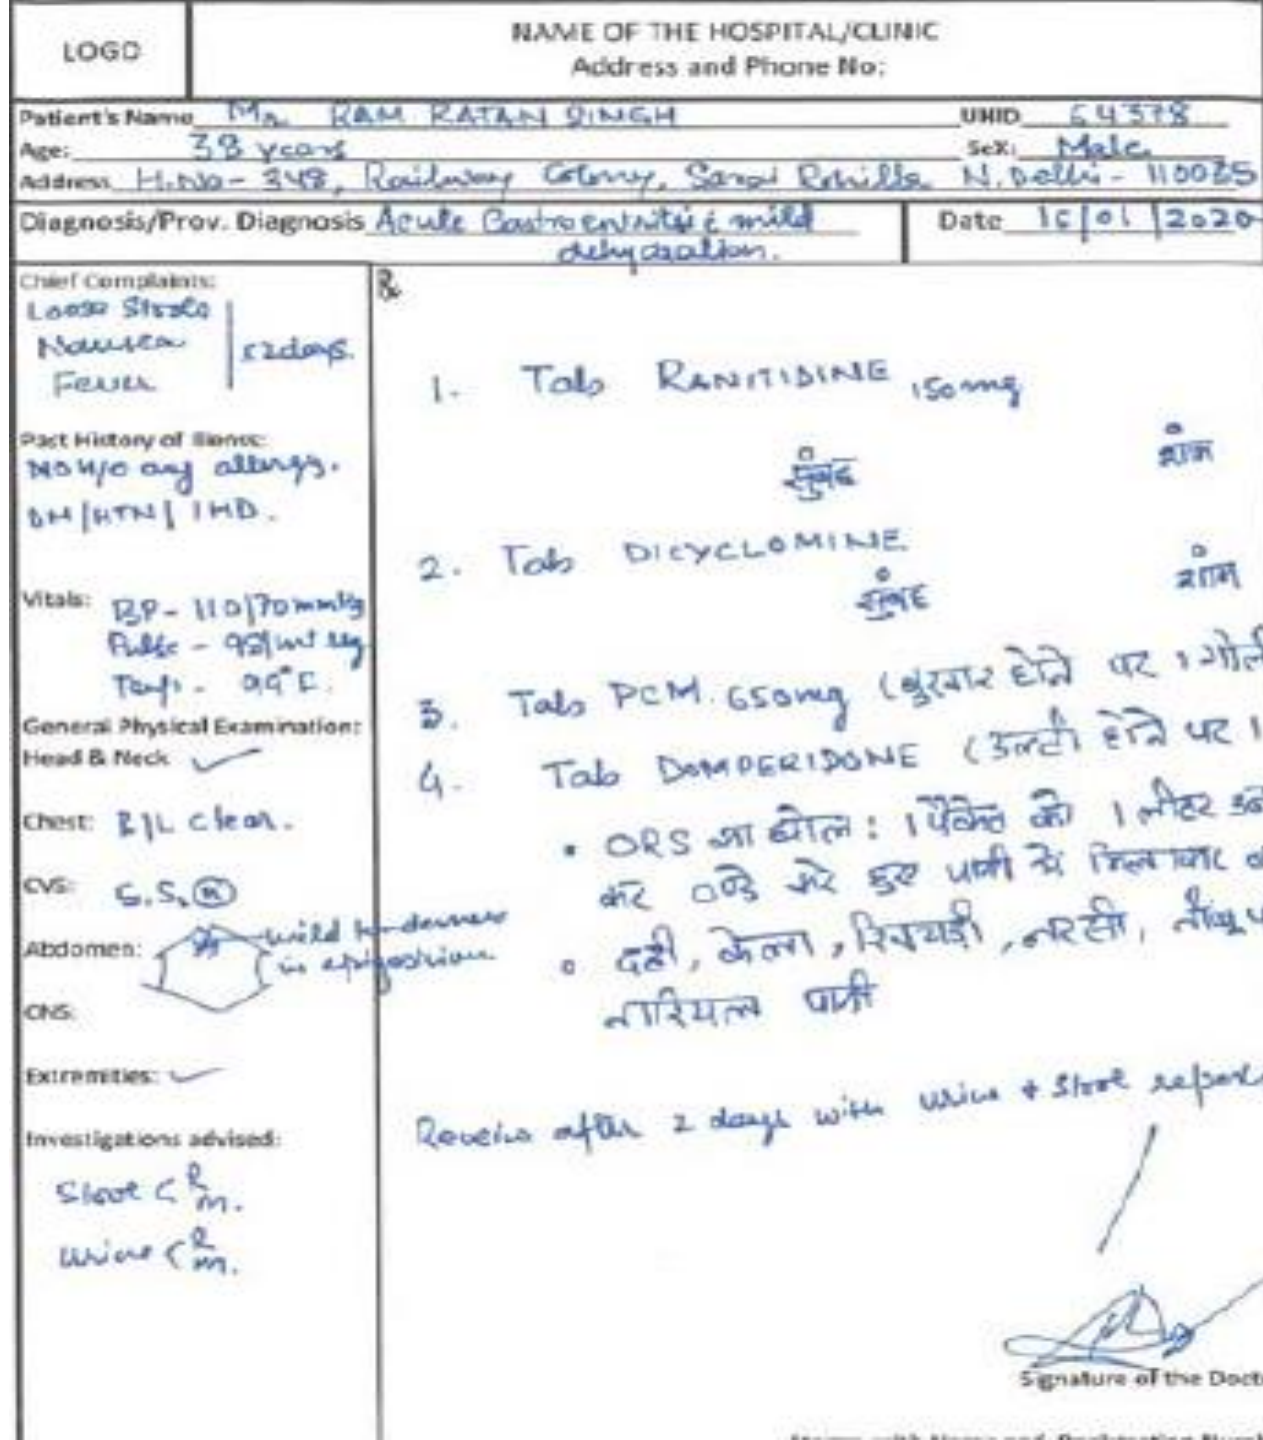 LOGO
NAME OF THE HOSPITAL/CLINIC
Address and Phone No:
Patient's Name Mr. RAM RATAN SINGH UHID 64378
Age: 38 years Sex: Male
Address H.No- 348, Railway Colony, Sarai Rohilla N. Delhi - 110035
Diagnosis/Prov. Diagnosis Acute Gastroentritis c mild
dehydration.
Date 2020
Chief Complaints:
Loose Stools
Nausea x2days.
Fever
Past History of Illness:
No H/o any allergy.
DM/HTN/ IHD.
Vitals: BP - 110/70mmHg
Pulse -
Temp. - 99°F.
General Physical Examination:
Head & Neck ✓
Chest: B/L clear.
CVS: S.S. (N)
Abdomen: mild tenderness
in epigastrium
CNS:
Extremities: ✓
Investigations advised:
Stool < R
M.
Urine < R
M.
Rx
1. Tab RANITIDINE 150mg
सुबह शाम
2. Tab DICYCLOMINE
सुबह शाम
3. Tab PCM. 650mg (बुखार होने पर 1
4. Tab DOMPERIDONE (उल्टी होने पर 1
• ORS का घोल: 1 पैकेट को 1 लीटर
कर ठण्डे करे हुए पानी में मिलाकर
• दही, केला, खिचड़ी, लस्सी,
नारियल पानी
Review after 2 days with urine + Stool
Signature of the